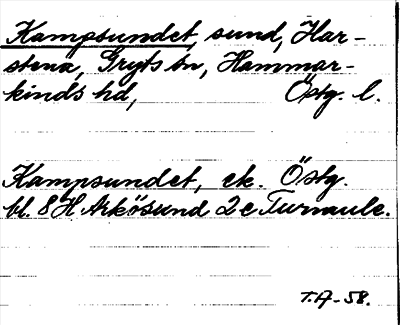 Kampsundet, sund, Har-
stena, Gryts sn, Hammar-
kinds hd, Östg. l.
Kampsundet, ek. Östg.
bl. 8H Arkösund 2c Turmulle.
T.A-58.